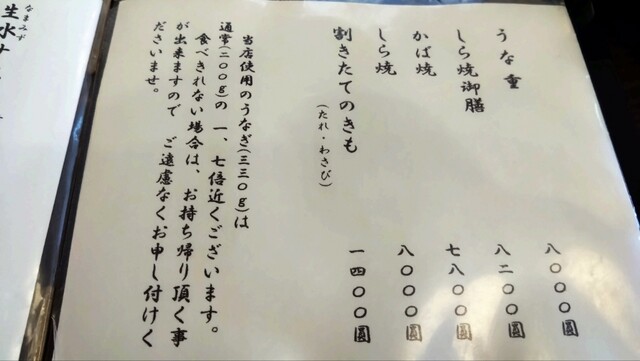 うな重 八〇〇〇圓
しら焼御膳 八二〇〇圓
かば焼 七八〇〇圓
しら焼 八〇〇〇圓
割きたてのきも 一四〇〇圓
(たれ・わさび)
当店使用のうなぎ(三三〇g)は
通常(二〇〇g)の 一、七倍近くございます。
食べきれない場合は、お持ち帰り頂く事
が出来ますので ご遠慮なくお申し付けく
ださいませ。
なまみず
生水